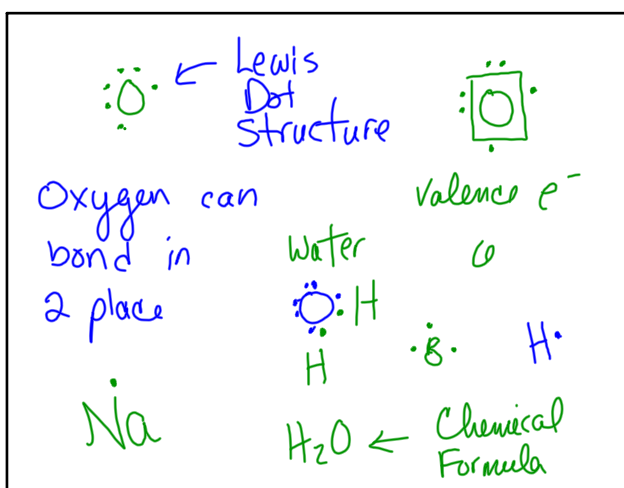 O ← Lewis
Dot
Structure
O
Oxygen can
bond in
2 place
Valence e⁻
6
Water
O H
H
B
H
Na
H₂O ← Chemical
Formula